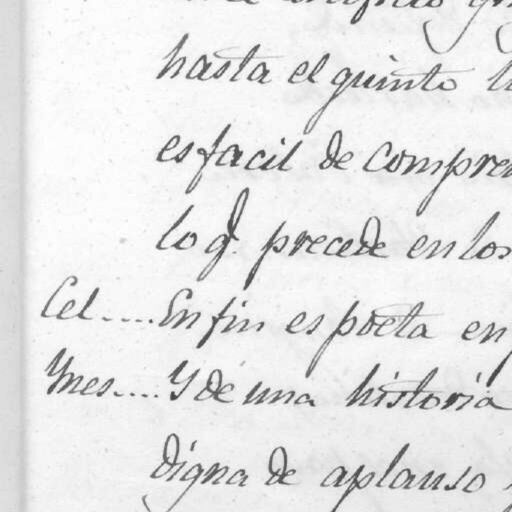 hasta el quinto
es facil de compre
lo q.^e precede en los
Cel.....En fin es poeta en
Ynes....Y de una historia
digna de aplauso